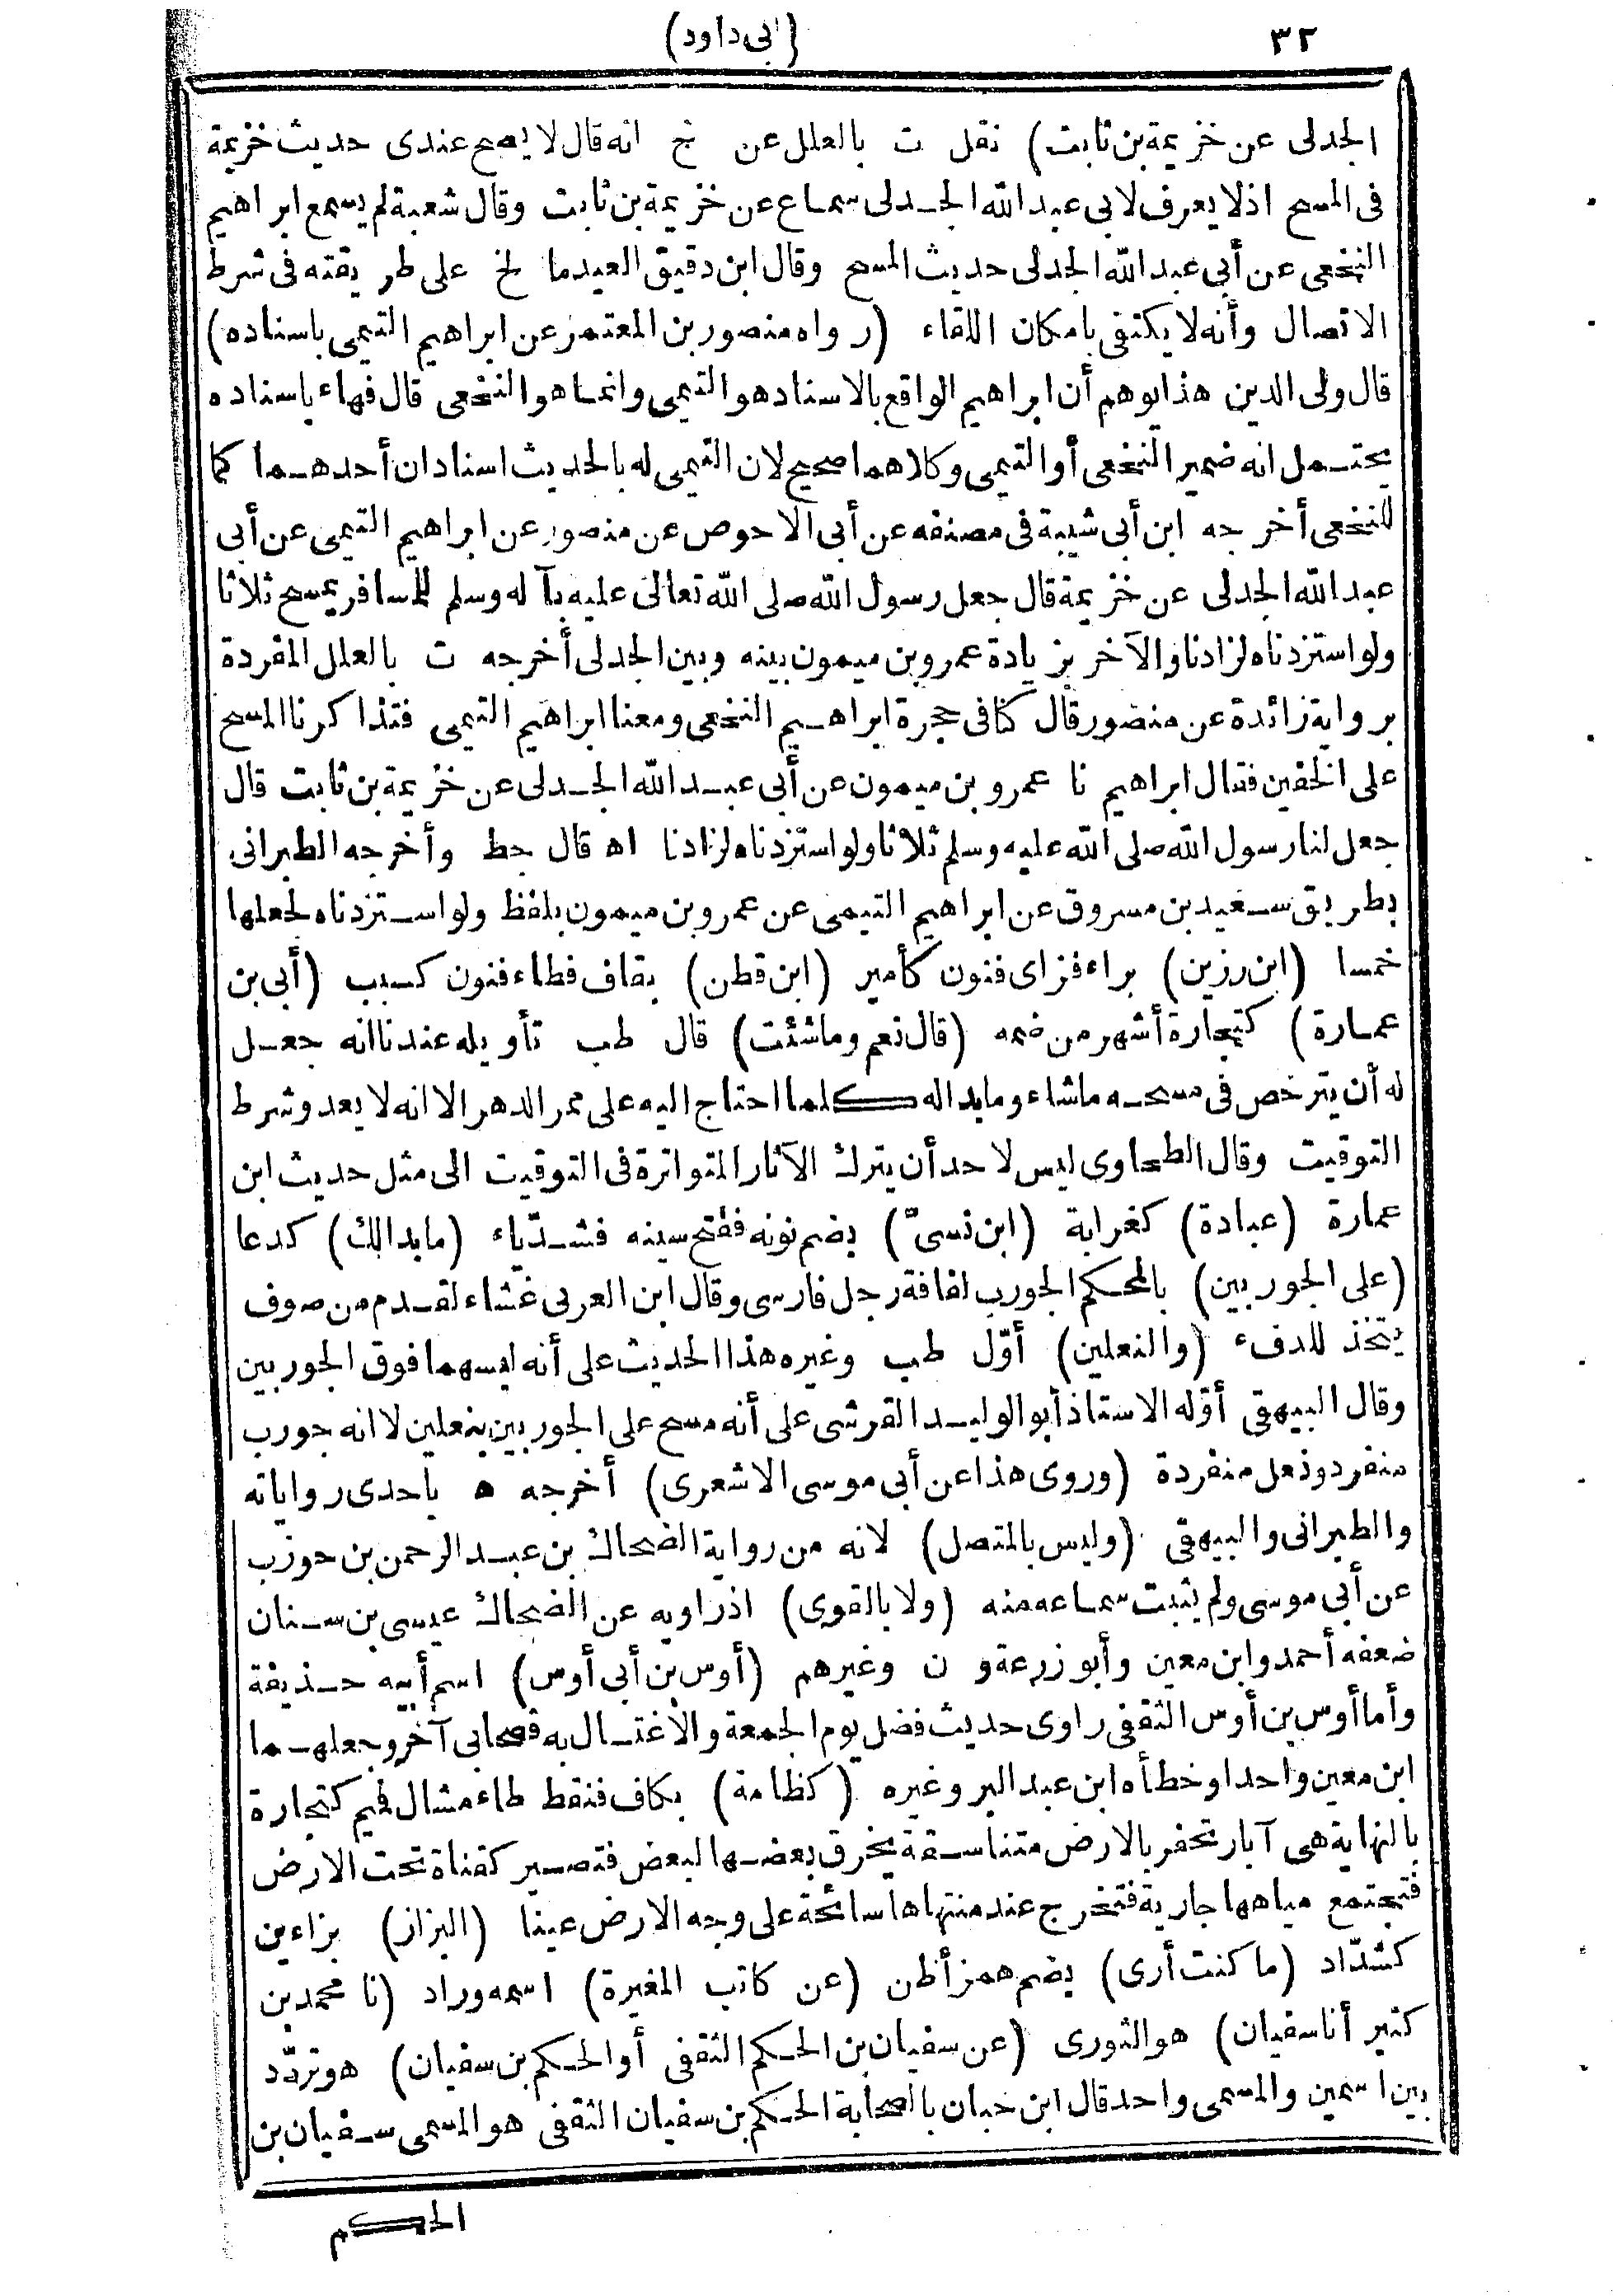 ٣٢
(أبى داود)
الجدلى عن خزيمة بن ثابت) نقل ت بالعلل عن خ انه قال لا يصح عندى حديث خزيمة
فى المسح اذ لا يعرف لابى عبد الله الجدلى سماع عن خزيمة بن ثابت وقال شعبة لم يسمع ابراهيم
النخعى عن أبى عبد الله الجدلى حديث المسح وقال ابن دقيق العيد ما لخ على طريقته فى شرط
الاتصال وأنه لا يكتفى بامكان اللقاء (رواه منصور بن المعتمر عن ابراهيم التيمى باسناده)
قال ولى الدين هذا يوهم أن ابراهيم الواقع بالاسناد هو التيمى وانما هو النخعى قال فهاء باسناده
يحتمل انه ضمير النخعى أو التيمى وكلاهما صحيح لان التيمى له بالحديث اسنادان أحدهما كما
للنخعى أخرجه ابن أبى شيبة فى مصنفه عن أبى الاحوص عن منصور عن ابراهيم التيمى عن أبى
عبد الله الجدلى عن خزيمة قال جعل رسول الله صلى الله تعالى عليه بآله وسلم للمسافر يمسح ثلاثا
ولو استزدناه لزادنا والآخر بزيادة عمرو بن ميمون بينه وبين الجدلى أخرجه ت بالعلل المفردة
برواية زائدة عن منصور قال كنا فى حجرة ابراهيم النخعى ومعنا ابراهيم التيمى فتذاكرنا المسح
على الخفين فقال ابراهيم نا عمرو بن ميمون عن أبى عبد الله الجدلى عن خزيمة بن ثابت قال
جعل لنا رسول الله صلى الله عليه وسلم ثلاثا ولو استزدناه لزادنا اه قال جط وأخرجه الطبرانى
بطريق سعيد بن مسروق عن ابراهيم التيمى عن عمرو بن ميمون بلفظ ولو استزدناه لجعلها
خمسا (ابن رزين) براء فزاى فنون كأمير (ابن قطن) بقاف فطاء فنون كسبب (أبى بن
عمارة) كتجارة أشهر من ضمه (قال نعم وما شئت) قال طب تأويله عندنا انه جعل
له أن يترخص فى مسحه ما شاء وما بدا له كلما احتاج اليه على ممر الدهر الا انه لا يعدو شرط
التوقيت وقال الطحاوى ليس لاحد أن يترك الآثار المتواترة فى التوقيت الى مثل حديث ابن
عمارة (عبادة) كغرابة (ابن نسىّ) بضم نونه ففتح سينه فشدّياء (ما بدا لك) كدعا
(على الجوربين) بالمحكم الجورب لفافة رجل فارسى وقال ابن العربى غشاء لقدم من صوف
يتخذ للدفء (والنعلين) أوّل طب وغيره هذا الحديث على أنه لبسهما فوق الجوربين
وقال البيهقى أوّله الاستاذ أبو الوليد القرشى على أنه مسح على الجوربين بنعلين لا انه جورب
منفرد ونعل منفردة (وروى هذا عن أبى موسى الاشعرى) أخرجه ه باحدى رواياته
والطبرانى والبيهقى (وليس بالمتصل) لانه من رواية الضحاك بن عبد الرحمن بن حوزب
عن أبى موسى ولم يثبت سماعه منه (ولا بالقوى) اذ راويه عن الضحاك عيسى بن سنان
ضعفه أحمد وابن معين وأبو زرعة و ن وغيرهم (أوس بن أبى أوس) اسم أبيه حذيفة
وأما أوس بن أوس الثقفى راوى حديث فضل يوم الجمعة والاغتسال به فصحابى آخر وجعلهما
ابن معين واحدا وخطأه ابن عبد البر وغيره (كظامة) بكاف فنقط طاء مشال فميم كتجارة
بالنهاية هى آبار تحفر بالارض متناسقة يخرق بعضها لبعض فتصير كقناة تحت الارض
فتجتمع مياهها جارية فتخرج عند منتهاها سائحة على وجه الارض عينا (البزاز) بزاءين
كشدّاد (ما كنت أرى) بضم همز أظن (عن كاتب المغيرة) اسمه وراد (نا محمد بن
كثير أنا سفيان) هو الثورى (عن سفيان بن الحكم الثقفى أو الحكم بن سفيان) هو تردّد
بين اسمين والمسمى واحد قال ابن حبان بالصحابة الحكم بن سفيان الثقفى هو المسمى سفيان بن
الحكم